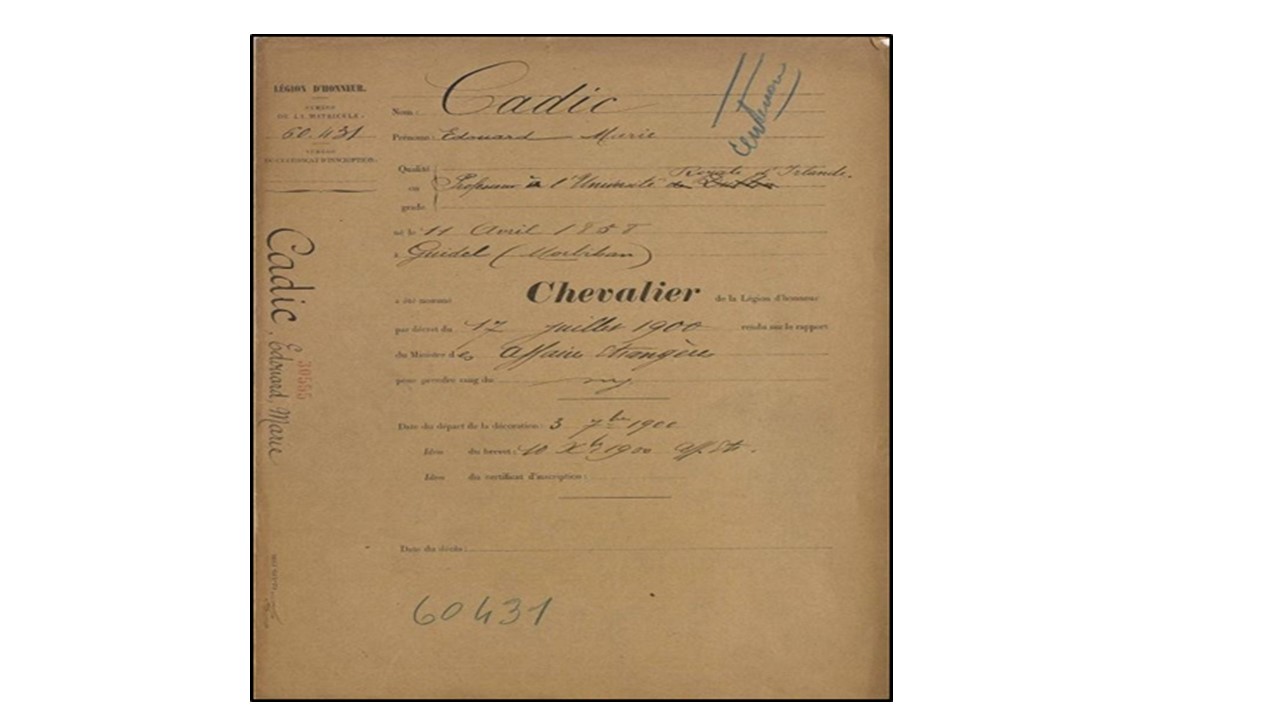 LÉGION D'HONNEUR.
NUMÉRO
DE LA MATRICULE.
60.431
NUMÉRO
DU CERTIFICAT D'INSCRIPTION.
Cadic, Edouard, Marie
30555
Nom : Cadic
Prénoms : Edouard Marie
centenaire
Qualité
ou
grade.
Royale d'Irlande.
Professeur à l'Université de Dublin
né le 11 Avril 1858
à Guidel (Morbihan)
a été nommé Chevalier de la Légion d'honneur
par décret du 17 juillet 1900 rendu sur le rapport
du Ministre des Affaires Etrangères
pour prendre rang du
Date du départ de la décoration : 3 7bre 1900
Idem du brevet : 10 Xbre 1900 aff. Et.
Idem du certificat d'inscription :
Date du décès :
60431